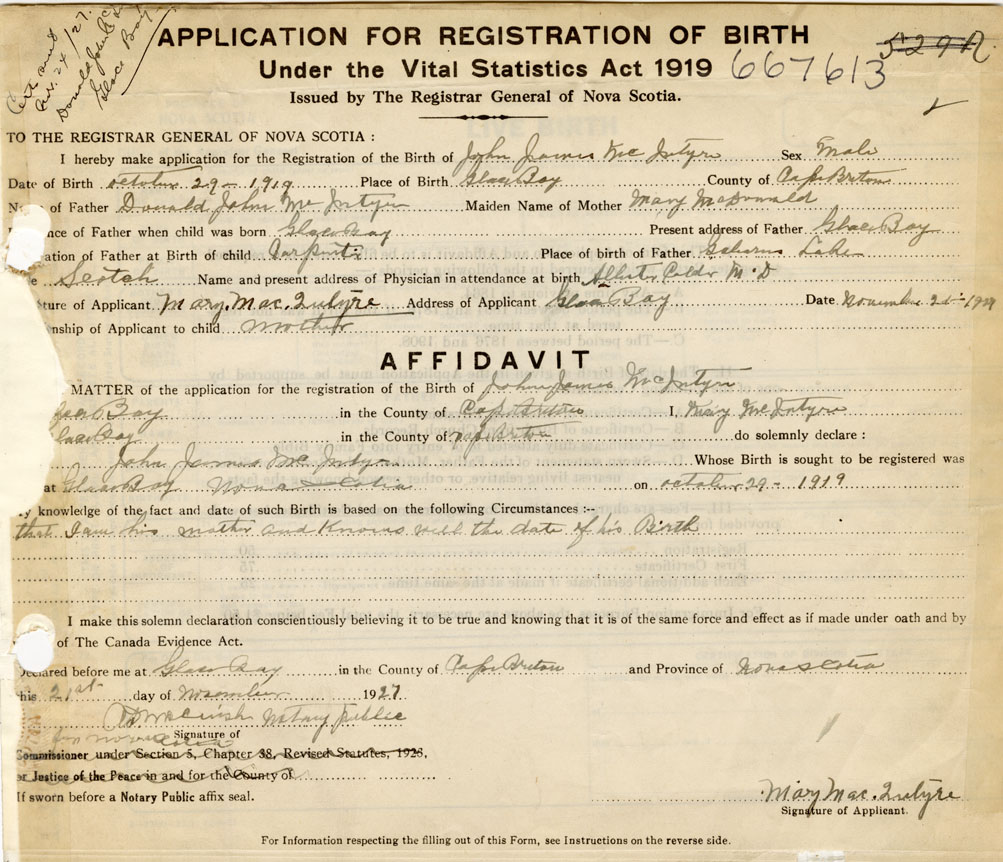 Cert and
Nov. 24/27.
Donald John Mc
Glace Bay
APPLICATION FOR REGISTRATION OF BIRTH
529 R
Under the Vital Statistics Act 1919 667613
Issued by The Registrar General of Nova Scotia.
TO THE REGISTRAR GENERAL OF NOVA SCOTIA :
I hereby make application for the Registration of the Birth of John James Mc Intyre Sex Male
Date of Birth october 29 - 1919 Place of Birth Glace Bay County of Cape Breton
of Father Donald John Mc Intyre Maiden Name of Mother Mary McDonald
ence of Father when child was born Glace Bay Present address of Father Glace Bay
ation of Father at Birth of child Carpenter Place of birth of Father Gabarus Lake
Scotch Name and present address of Physician in attendance at birth Albert Calder M.D
ture of Applicant Mary Mac.Intyre Address of Applicant Glace Bay Date November 21st 1927
nship of Applicant to child mother
AFFIDAVIT
MATTER of the application for the registration of the Birth of John James McIntyre
Glace Bay in the County of Cape Breton I, Mary McIntyre
Glace Bay in the County of Cape Breton do solemnly declare :
John James Mc Intyre Whose Birth is sought to be registered was
at Glace Bay Nova Scotia on october 29 - 1919
y knowledge of the fact and date of such Birth is based on the following Circumstances :--
that I am his mother and knows well the date of his Birth
I make this solemn declaration conscientiously believing it to be true and knowing that it is of the same force and effect as if made under oath and by
of The Canada Evidence Act.
Declared before me at Glace Bay in the County of Cape Breton and Province of Nova Scotia
this 21st day of November 1927
Notary Public
Signature of
Commissioner under Section 5, Chapter 38, Revised Statutes, 1923,
or Justice of the Peace in and for the County of
If sworn before a Notary Public affix seal.
Mary Mac.Intyre
Signature of Applicant.
For Information respecting the filling out of this Form, see Instructions on the reverse side.